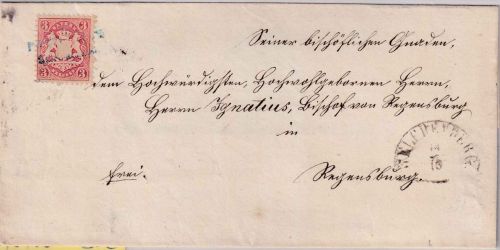 3 3
3 3
Seiner bischöflichen Gnaden,
dem Hochwürdigsten, Hochwohlgebornen Herrn,
Herrn Ignatius, Bischof von Regensburg
in
frei. Regensburg.